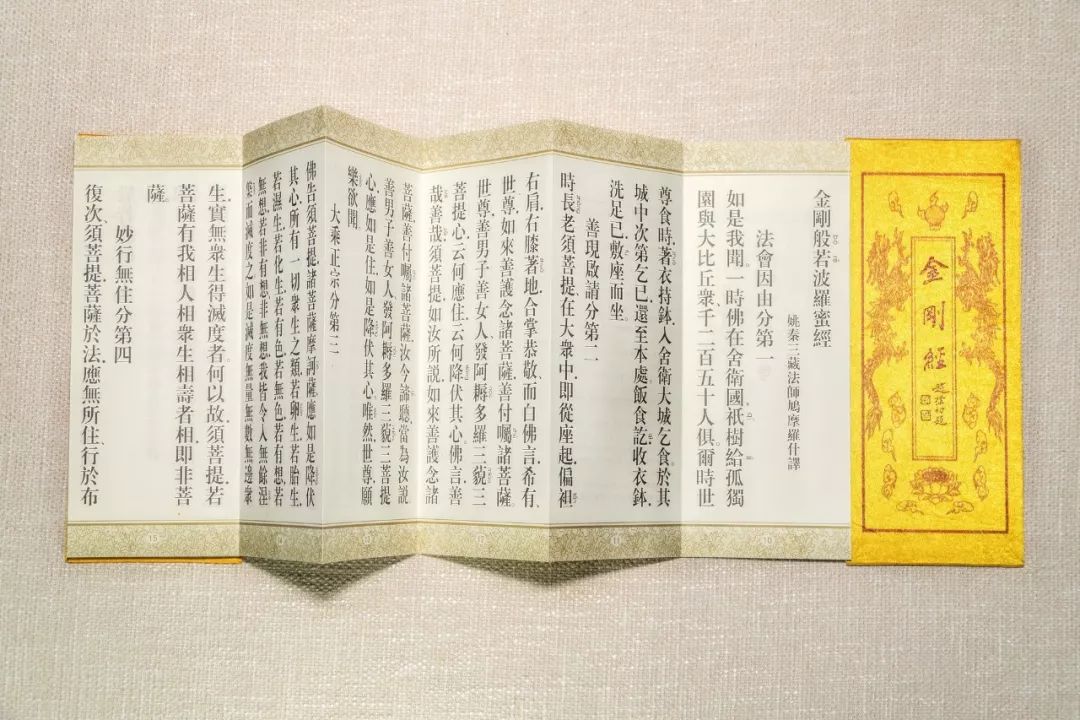 金剛經
趙樸初題
金剛般若波羅蜜經
姚秦三藏法師鳩摩羅什譯
法會因由分第一
如是我聞。一時佛在舍衛國祇樹給孤獨
園與大比丘衆千二百五十人俱。爾時世
尊食時著衣持鉢入舍衛大城乞食於其
城中次第乞已還至本處飯食訖收衣鉢
洗足已敷座而坐。
10
善現啟請分第二
時長老須菩提在大衆中即從座起偏袒
11
右肩右膝著地合掌恭敬而白佛言希有
世尊如來善護念諸菩薩善付囑諸菩薩。
世尊善男子善女人發阿耨多羅三藐三
菩提心云何應住云何降伏其心。佛言善
哉善哉須菩提如汝所說如來善護念諸
12
菩薩善付囑諸菩薩汝今諦聽當為汝說
善男子善女人發阿耨多羅三藐三菩提
心應如是住如是降伏其心唯然世尊願
樂欲聞。
大乘正宗分第三
13
佛告須菩提諸菩薩摩訶薩應如是降伏
其心所有一切衆生之類若卵生若胎生
若濕生若化生若有色若無色若有想若
無想若非有想非無想我皆令入無餘涅
槃而滅度之如是滅度無量無數無邊衆
14
生實無衆生得滅度者。何以故。須菩提若
菩薩有我相人相衆生相壽者相即非菩
薩。
妙行無住分第四
復次須菩提菩薩於法應無所住行於布
15